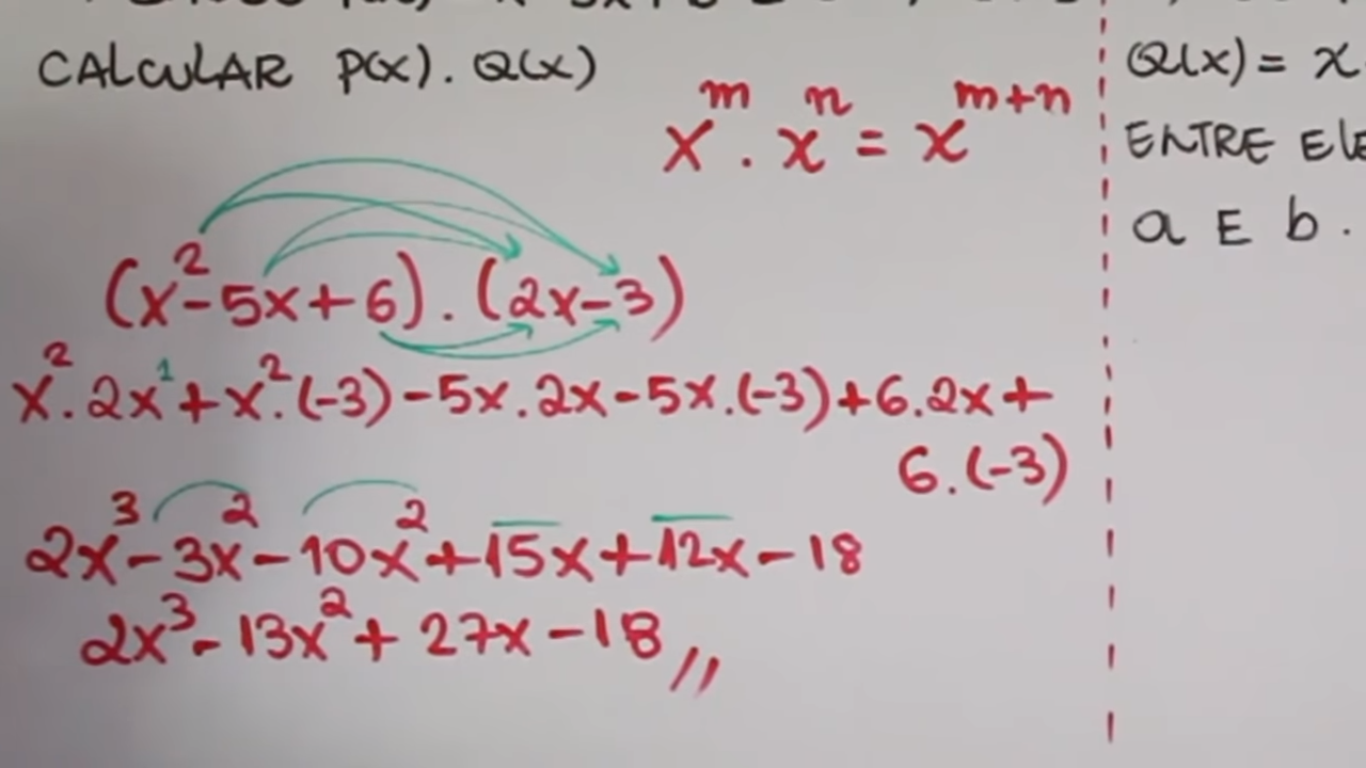 CALCULAR P(x) . Q(x)
x^m . x^n = x^(m+n)
(x²-5x+6) . (2x-3)
x² . 2x¹ + x² . (-3) - 5x . 2x - 5x . (-3) + 6 . 2x +
6 . (-3)
2x³ - 3x² - 10x² + 15x + 12x - 18
2x³ - 13x² + 27x - 18 //
Q(x) = x
ENTRE ELE
a E b .